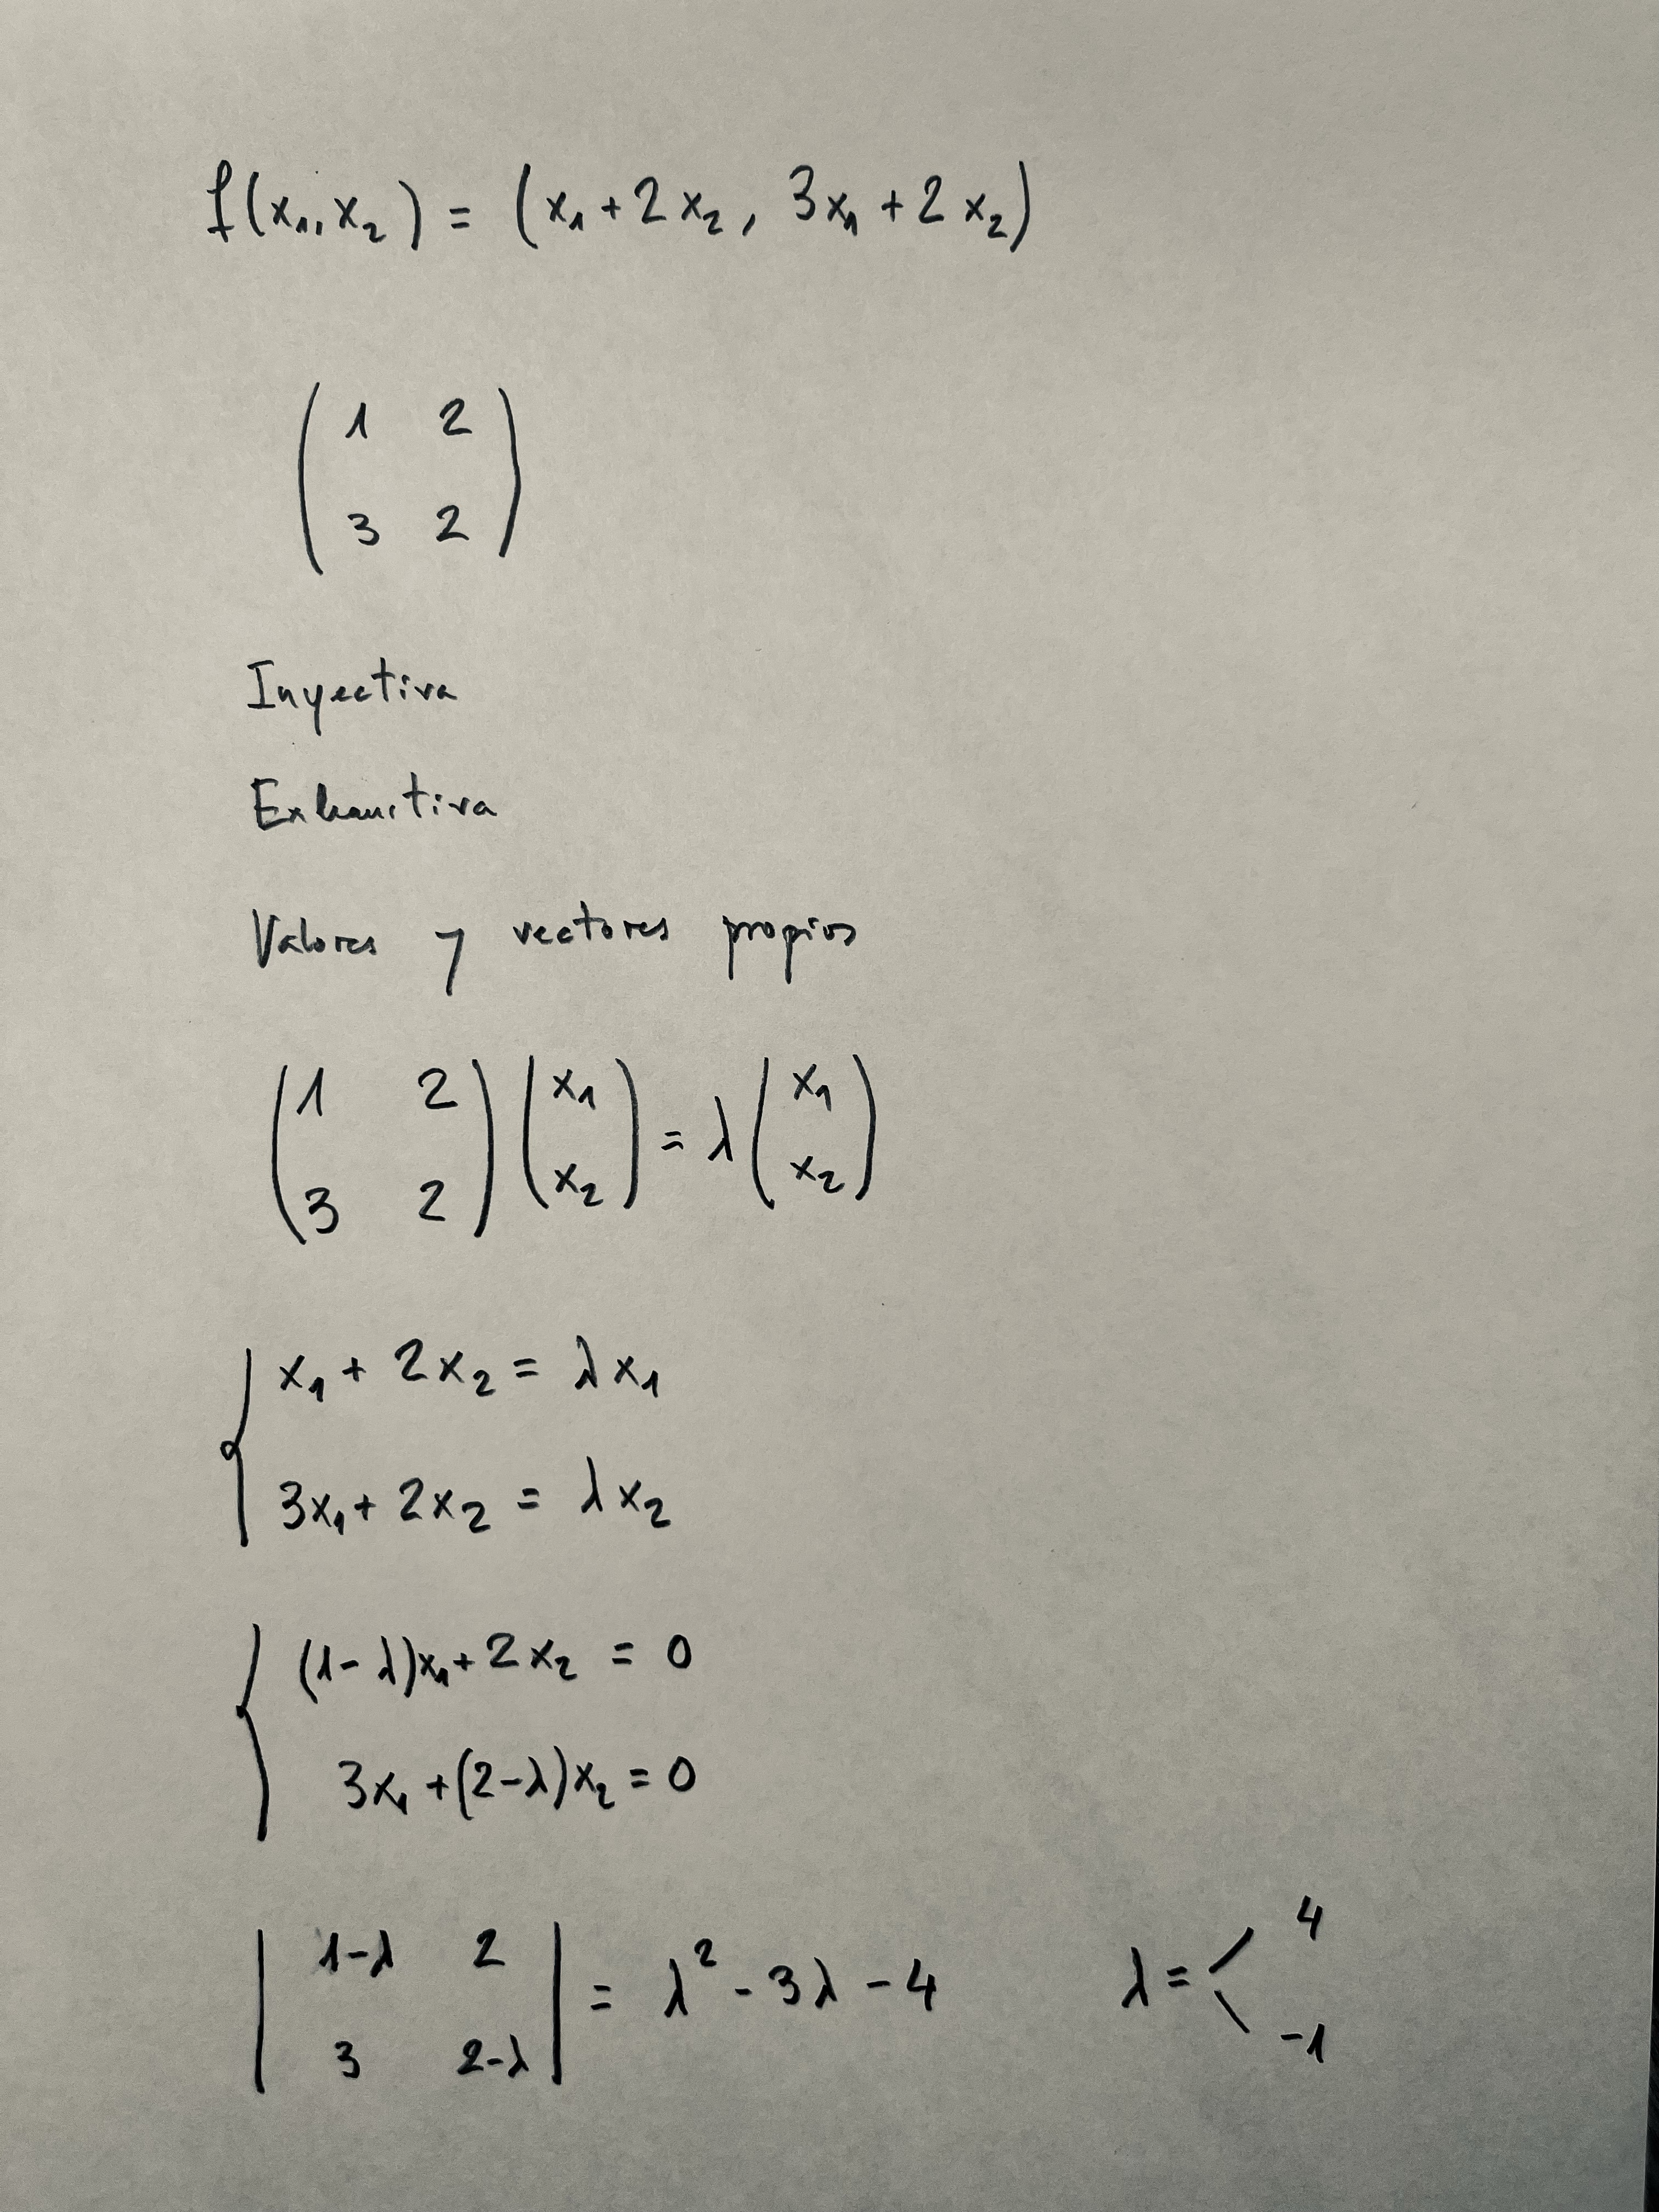 f(x₁, x₂) = (x₁ + 2x₂, 3x₁ + 2x₂)
( 1 2
3 2 )
Inyectiva
Exhaustiva
Valores y vectores propios
( 1 2 ) ( x₁ ) = λ ( x₁ )
( 3 2 ) ( x₂ ) ( x₂ )
{ x₁ + 2x₂ = λx₁
3x₁ + 2x₂ = λx₂
{ (1-λ)x₁ + 2x₂ = 0
3x₁ + (2-λ)x₂ = 0
| 1-λ 2 | = λ² - 3λ - 4 λ = < 4
| 3 2-λ | -1